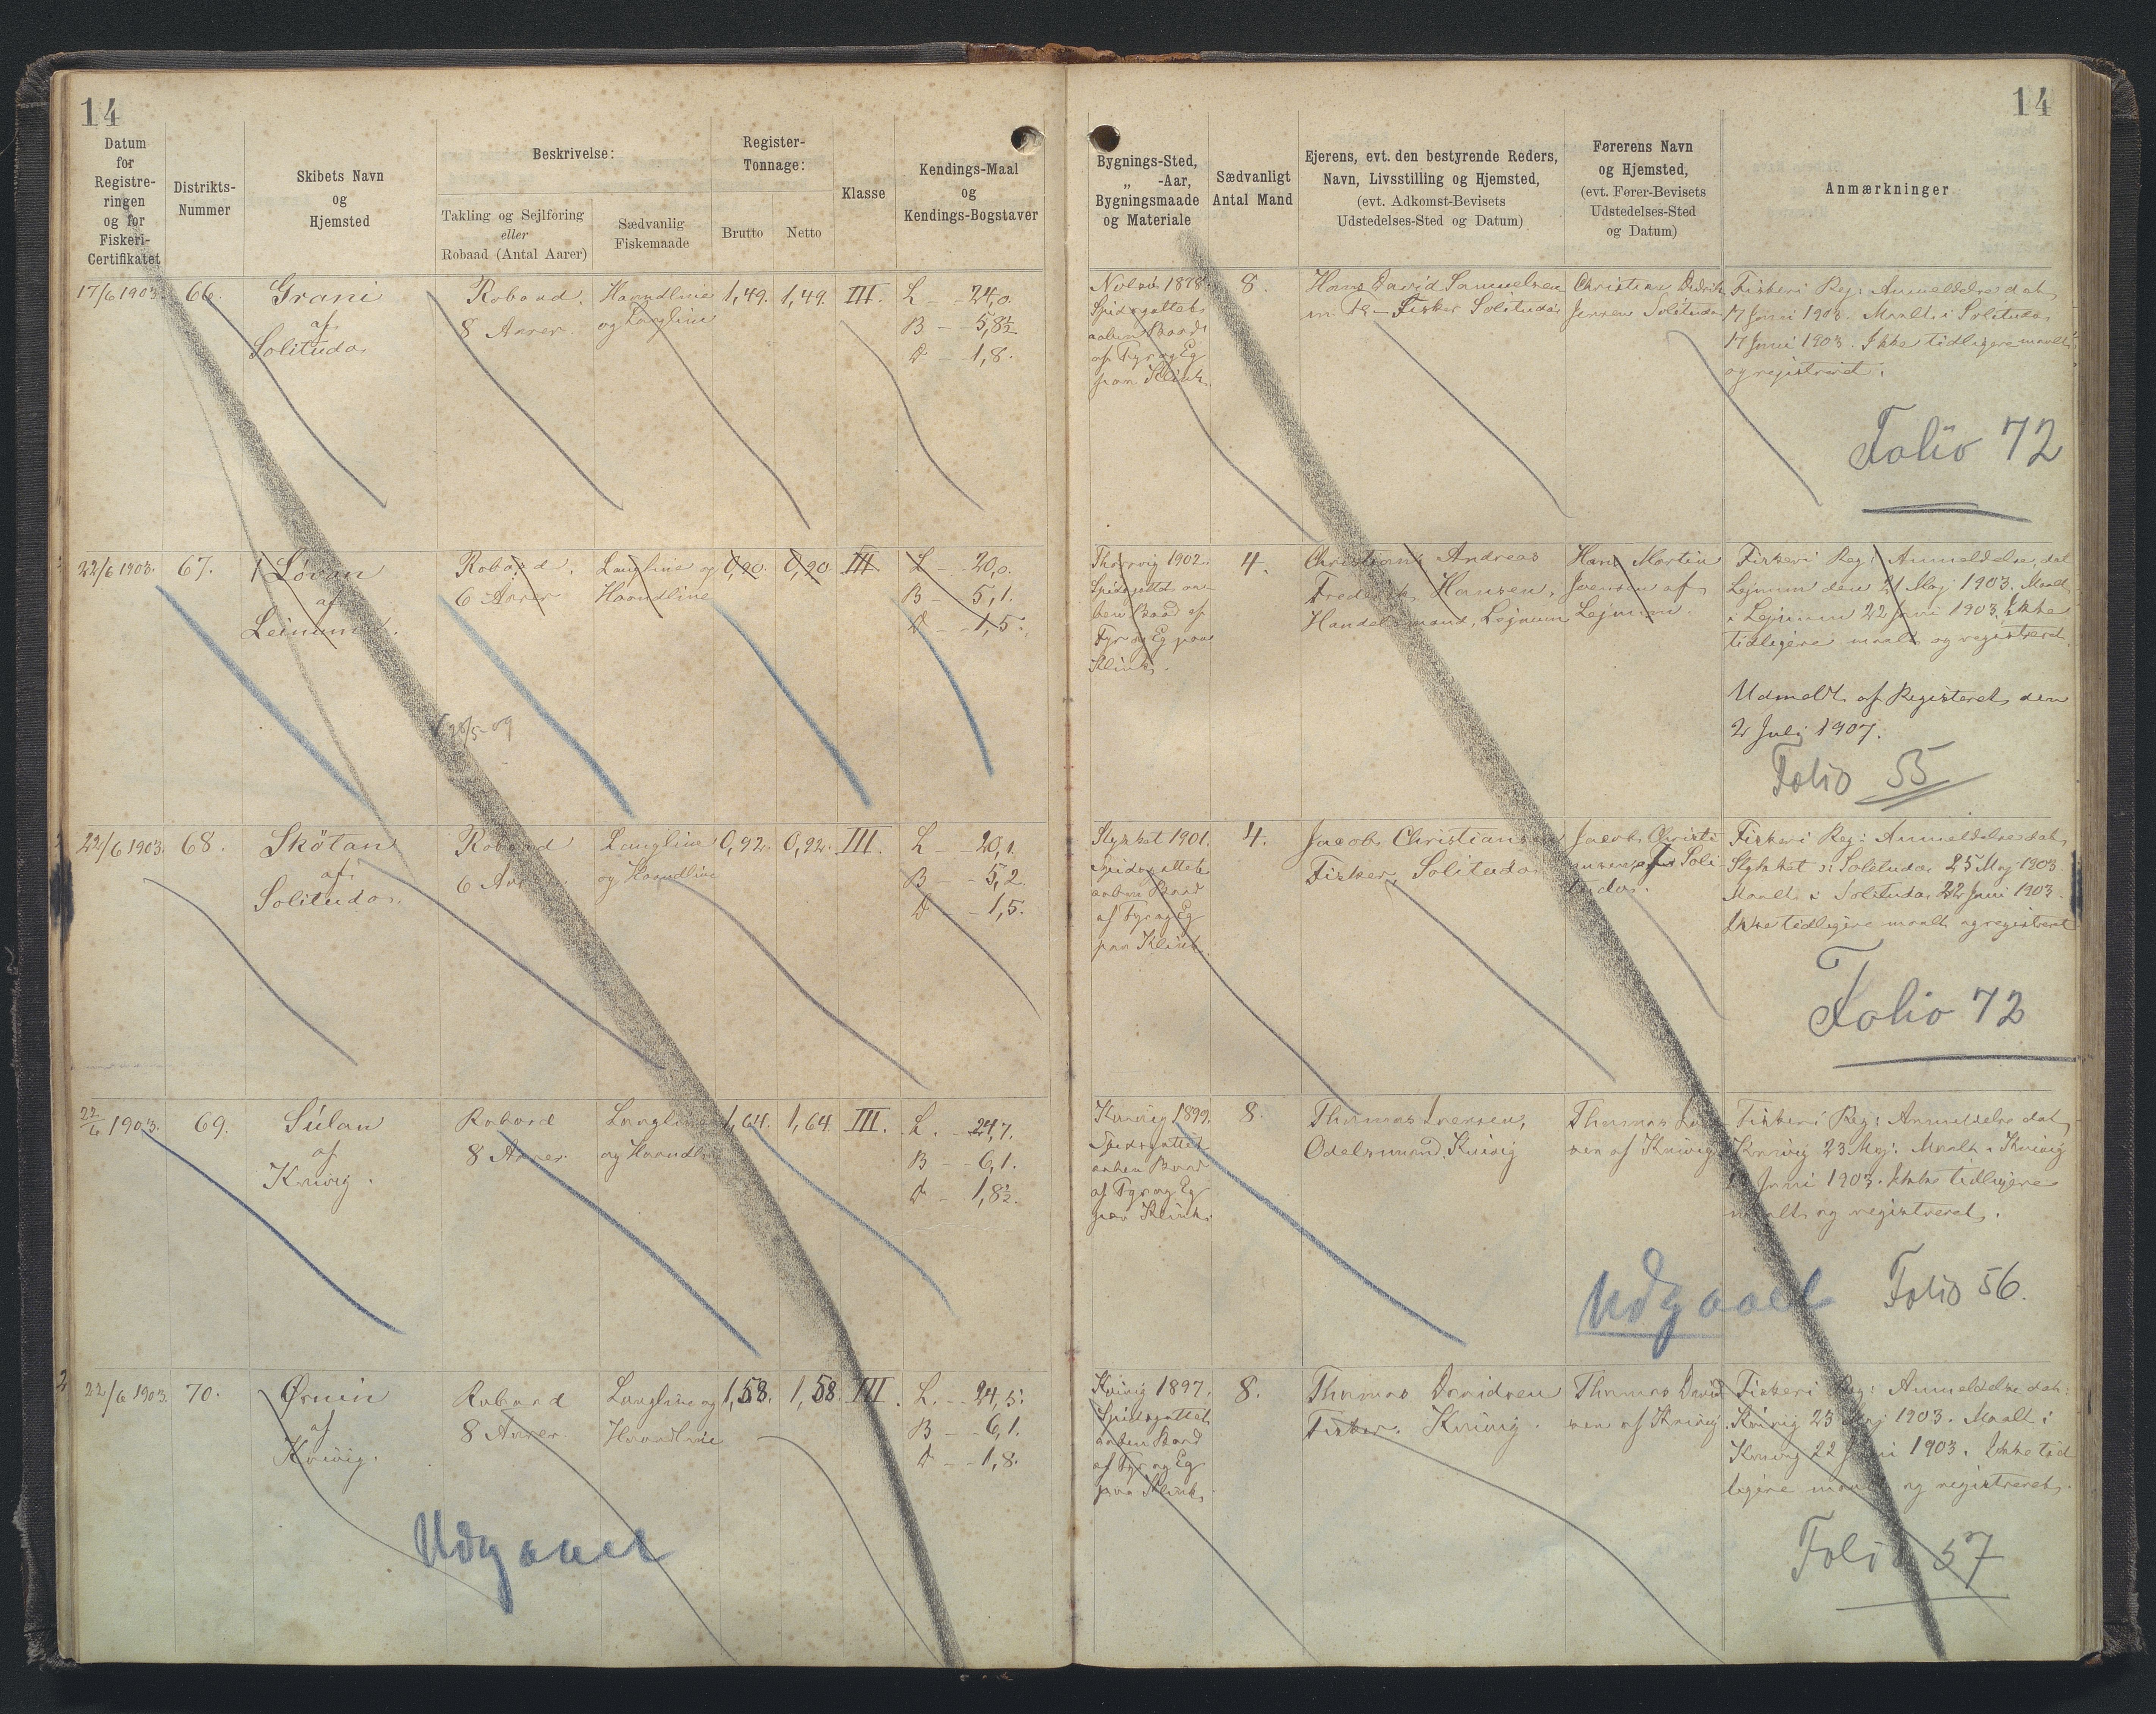 14
14
Datum
for
Registre-
ringen
og for
Fiskeri-
Certifikatet
Distrikts-
Nummer
Skibets Navn
og
Hjemsted
Beskrivelse:
Takling og Sejlføring
eller
Robaad (Antal Aarer)
Sædvanlig
Fiskemaade
Register-
Tonnage:
Brutto
Netto
Klasse
Kendings-Maal
og
Kendings-Bogstaver
Bygnings-Sted,
„ -Aar,
Bygningsmaade
og Materiale
Sædvanligt
Antal Mand
Ejerens, evt. den bestyrende Reders,
Navn, Livsstilling og Hjemsted,
(evt. Adkomst-Bevisets
Udstedelses-Sted og Datum)
Førerens Navn
og Hjemsted,
(evt. Fører-Bevisets
Udstedelses-Sted
og Datum)
Anmærkninger
17/6 1903.
66.
Grani
af
Solitudo.
Robaad.
8 Aarer.
Haandline
og Langline
1,49.
1,49.
III.
L – 24,0.
B – 5,8½
D – 1,8.
1878
Spidsgattet
aaben Baad
af Fyr og Eg
paa Klink.
8.
Hans David Samuelsen
Fisker Solitudo
Christian Didrik
Jensen Solitudo
Fiskeri Reg: Anmeldelse dat.
17 Juni 1903. Maalt i Solitudo
17 Juni 1903. Ikke tidligere maalt
og registreret.
Folio 72
22/6 1903.
67.
Lóvan
af
Leinum.
Robaad.
6 Aarer
Langline og
Haandline
0,90
0,90
III
L – 20,0.
B – 5,1.
D – 1,5.
1902.
Spidsgattet aa-
ben Baad af
Fyr og Eg paa
Klink.
4.
Christian Andreas
Frederik Hansen,
Handelsmand, Lejnum
Hans Martin
Joensen af
Lejnum.
Fiskeri Reg: Anmeldelse dat
Lejnum den 21 Maj 1903. Maalt
i Lejnum 22 Juni 1903. Ikke
tidligere maalt og registreret.
Udmeldt af Registeret den
2 Juli 1907.
Folio 55
22/6 1903.
68.
Skötan
af
Solitudo.
Robaad
6 Aarer.
Langline
og Haandline
0,92.
0,92.
III.
L – 20,1.
B – 5,2.
D – 1,5.
Slykket 1901.
Spidsgattet
aaben Baad
af Fyr og Eg
paa Klink.
4.
Jacob Christiansen
Fisker, Solitudo
Jacob Christi
ansen af Soli
tudo.
Fiskeri Reg: Anmeldelse dat.
Slykket i Solitudo 25 Maj 1903.
Maalt i Solitudo 22 Juni 1903.
Ikke tidligere maalt og registreret
Folio 72
22/6 1903.
69.
Súlan
af
Kvivig.
Robaad
8 Aarer.
Langline
og Haandline
1,64.
1,64
III.
L. – 24,7.
B – 6,1.
D – 1,8½.
Kvivig 1899.
Spidsgattet
aaben Baad
af Fyr og Eg
paa Klink.
8.
Thomas Joensen,
Odelsmand, Kvivig
Thomas Joen
sen af Kvivig
Fiskeri Reg: Anmeldelse dat.
Kvivig 23 Maj. Maalt i Kvivig
Juni 1903. Ikke tidligere
maalt og registreret.
Udgaaet
Folio 56.
22/6 1903.
70.
Ørnin
af
Kvivig.
Robaad
8 Aarer.
Langline og
Haandline
1,58.
1,58.
III.
L. – 24,5.
B – 6,1.
D – 1,8.
Kvivig 1897.
Spidsgattet
aaben Baad
af Fyr og Eg
paa Klink.
8.
Thomas Davidsen
Fisker. Kvivig.
Thomas David
sen af Kvivig
Fiskeri Reg: Anmeldelse dat:
Kvivig 23 Maj 1903. Maalt i
Kvivig 22 Juni 1903. Ikke tid
ligere maalt og registreret.
Udgaaet
Folio 57